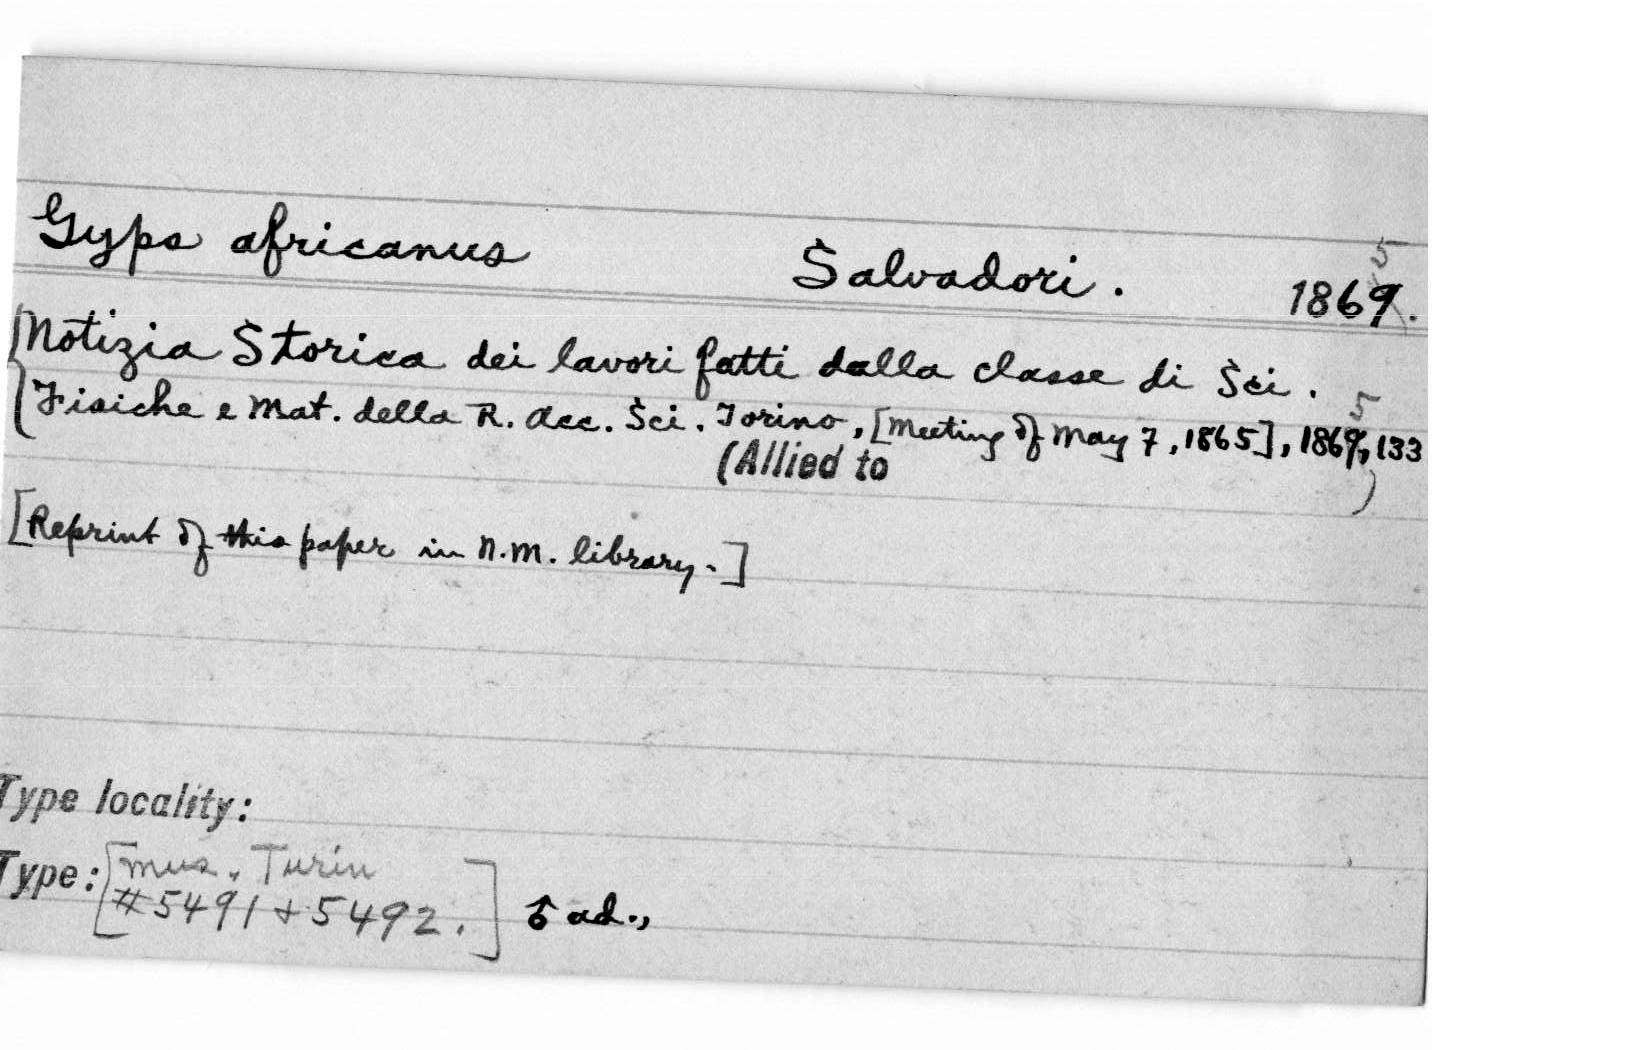 Gyps africanus Salvadori. 1869. 5
Notizia Storica dei lavori fatti dalla classe di Sci.
Fisiche e Mat. della R. Acc. Sci. Torino, [Meeting of May 7, 1865], 1869, 133 5
(Allied to )
[Reprint of this paper in N.M. library.]
Type locality:
Type: [Mus. Turin
#5491 + 5492.] ♂ ad.,